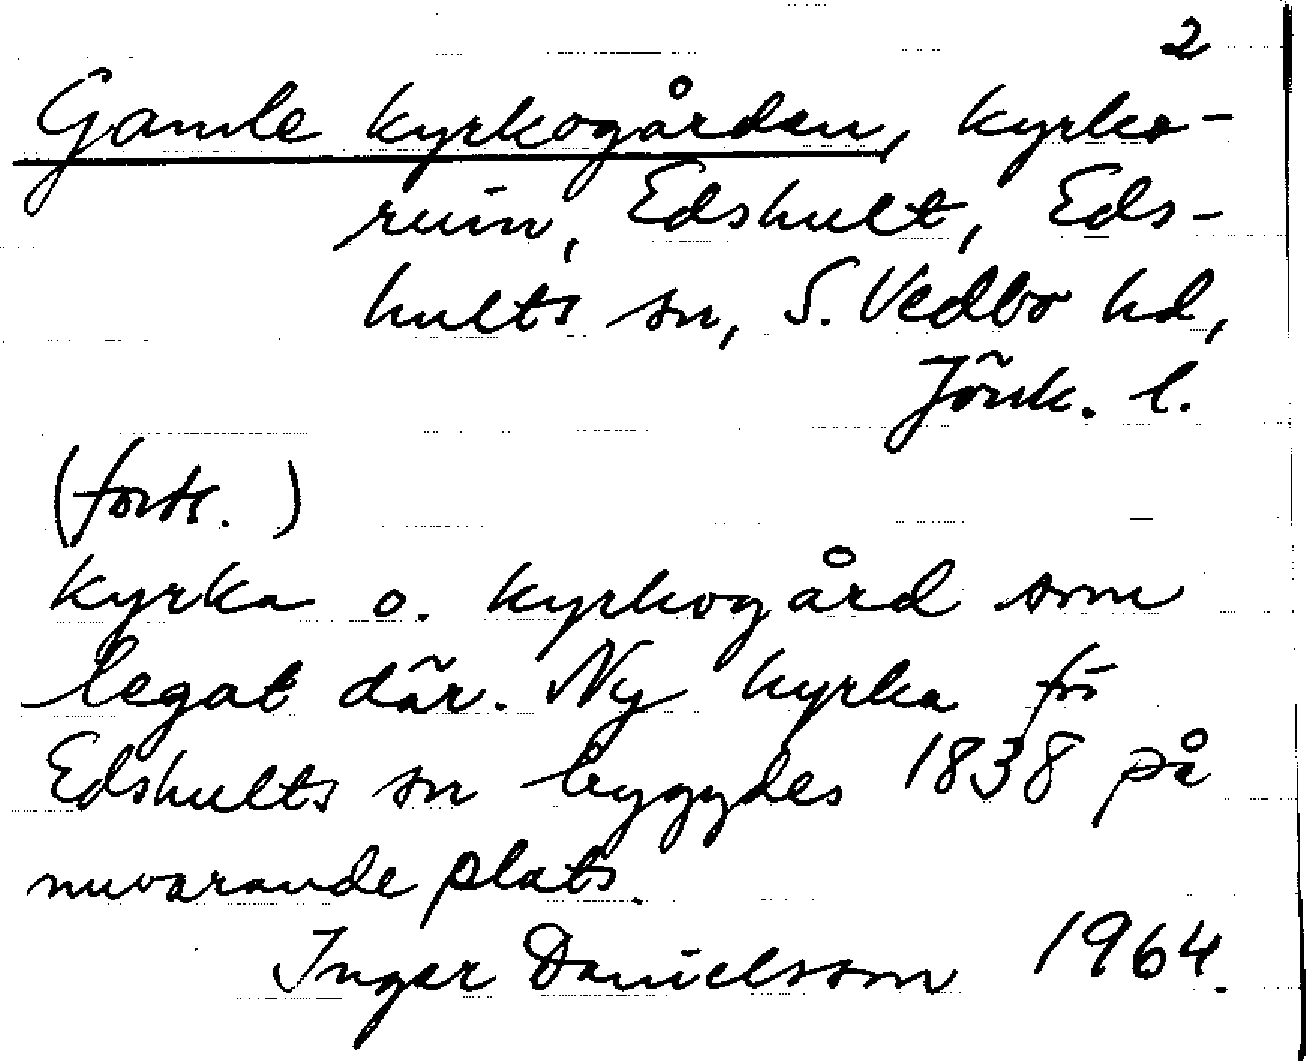 2
Gamle kyrkogården, kyrko-
ruin, Edshult, Eds-
hults sn, S. Vedbo hd,
Jönk. l.
(forts.)
kyrka o. kyrkogård som
legat där. Ny kyrka för
Edshults sn byggdes 1838 på
nuvarande plats.
Inger Danielsson 1964.